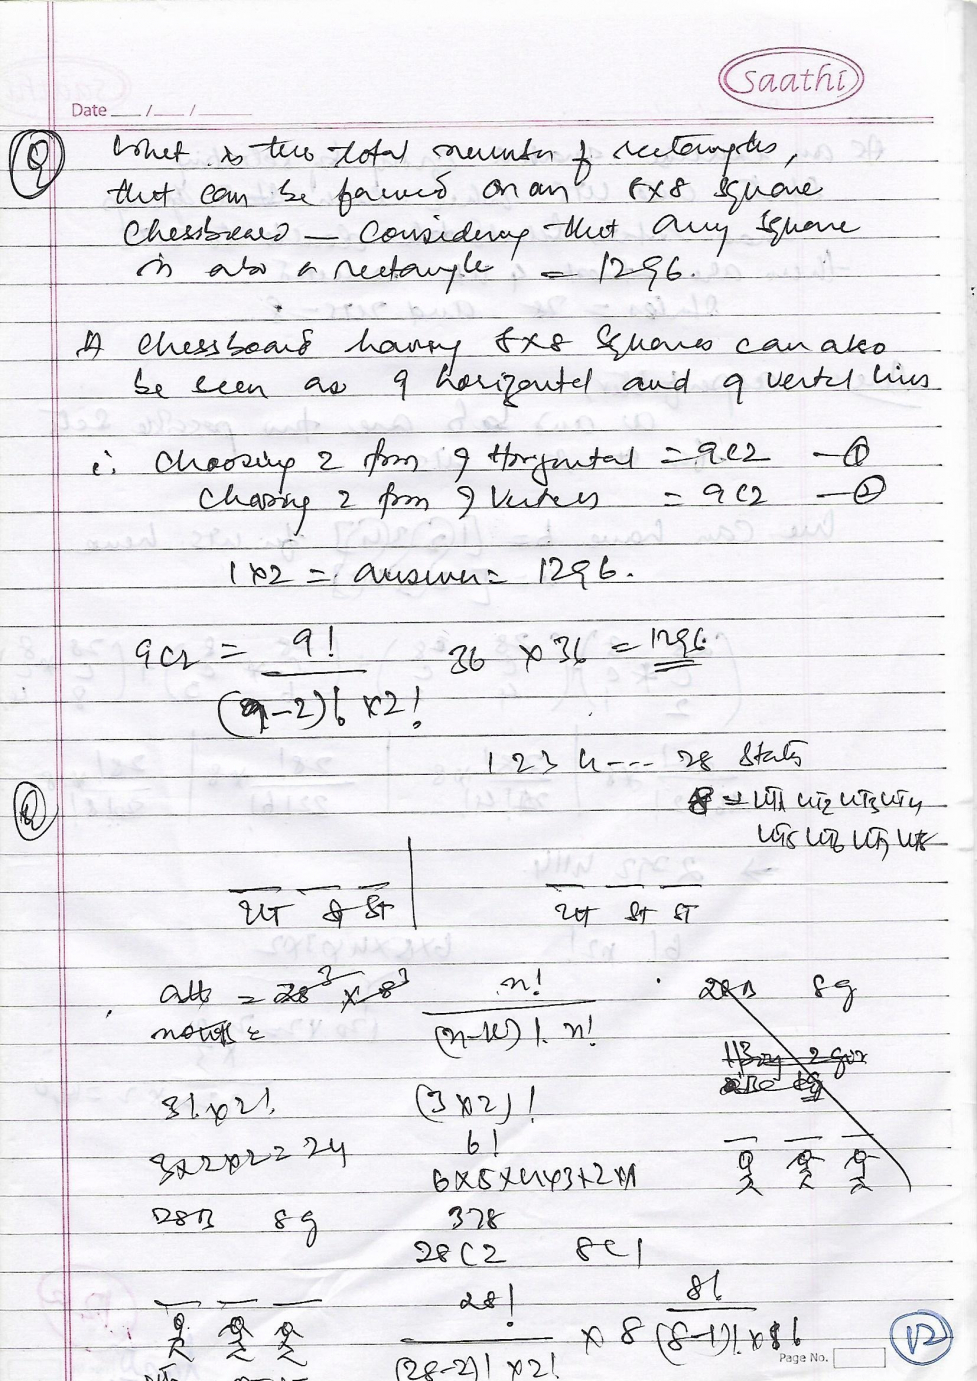 Saathi
Date __/__/____
Q What is the total number of rectangles,
that can be formed on an 8x8 square
chessboard — Considering that any square
is also a rectangle = 1296.
A chessboard having 8x8 Squares can also
be seen as 9 horizontal and 9 vertcl lines
Choosing 2 from 9 Horizontal = 9C2 — ①
Chosing 2 from 9 Verticls = 9C2 — ②
1 x 2 = answer = 1296.
9C2 = 9! / (9-2)! x 2! 36 x 36 = 1296
1 2 3 4 --- 28 Stats
Q 8 = UT1 UT2 UT3 UT4
UT5 UT6 UT7 UT8
UT ST ST UT ST ST
= 28³ x 8³ n! / (n-r)! n! 28B 8g
3! x 2! (3 x 2)!
3x2x2 = 24 6!
6x5x4x3x2x1
28B 8g 378
28C2 8C1
28! / (28-2)! x 2! x 8 8! / (8-1)! x 1!
Page No.
12